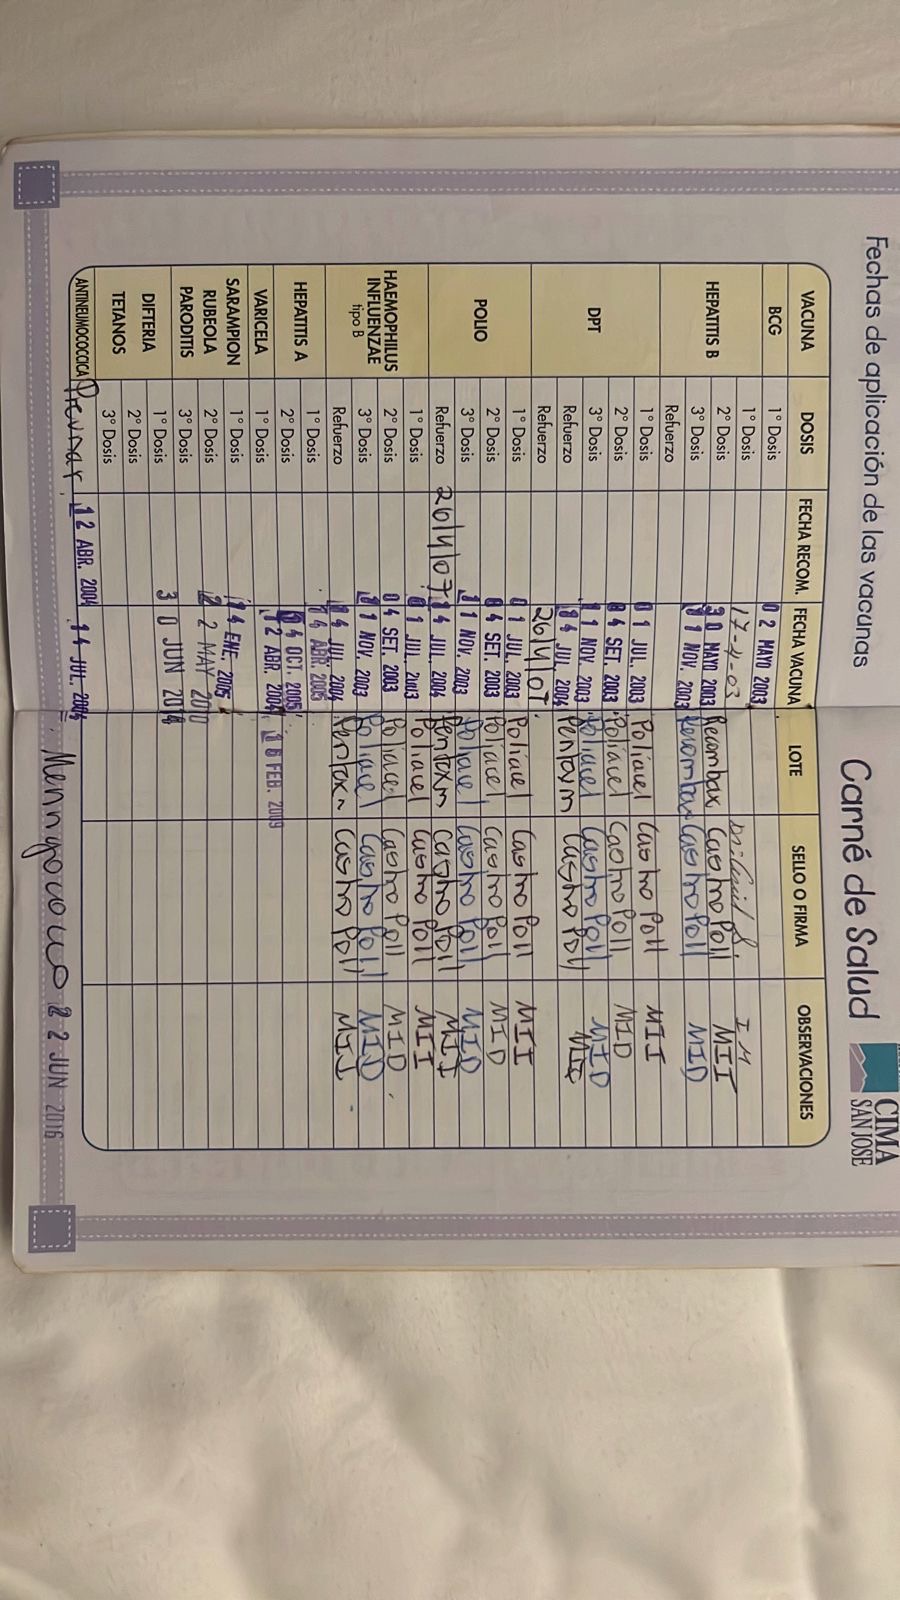 Fechas de aplicación de las vacunas
Carné de Salud
CIMA
SAN JOSE
VACUNA DOSIS FECHA RECOM. FECHA VACUNA LOTE SELLO O FIRMA OBSERVACIONES
BCG 1° Dosis 02 MAYO 2003
HEPATITIS B 1° Dosis 17-4-03 IM
2° Dosis 30 MAYO 2003 Recombax Castro Poll MII
3° Dosis 11 NOV. 2003 Recombax Castro Poll MID
Refuerzo
DPT 1° Dosis 01 JUL. 2003 Poliacel Castro Poll MII
2° Dosis 04 SET. 2003 Poliacel Castro Poll MID
3° Dosis 11 NOV. 2003 Poliacel Castro Poll MID
Refuerzo 14 JUL. 2004 Pentaxm Castro Poll MII
Refuerzo 26/4/07.
POLIO 1° Dosis 01 JUL. 2003 Poliacel Castro Poll MII
2° Dosis 04 SET. 2003 Poliacel Castro Poll MID
3° Dosis 11 NOV. 2003 Poliacel Castro Poll MID
Refuerzo 26/4/07 14 JUL. 2004 Pentaxm Castro Poll MII
HAEMOPHILUS INFLUENZAE tipo B 1° Dosis 01 JUL. 2003 Poliacel Castro Poll MII
2° Dosis 04 SET. 2003 Poliacel Castro Poll MID
3° Dosis 11 NOV. 2003 Poliacel Castro Poll MID
Refuerzo 14 JUL. 2004 Pentaxm Castro Poll MII
HEPATITIS A 1° Dosis ABR. 2005
2° Dosis 04 OCT. 2005
VARICELA 1° Dosis 12 ABR. 2004 FEB. 2009
SARAMPION RUBEOLA PARODITIS 1° Dosis 14 ENE. 2005
2° Dosis 22 MAY 2010
3° Dosis
DIFTERIA TETANOS 1° Dosis 30 JUN 2014
2° Dosis
3° Dosis
ANTINEUMOCOCCICA Prevnar. 12 ABR. 2004 14 JUL. 2004 Meningococco 22 JUN 2016